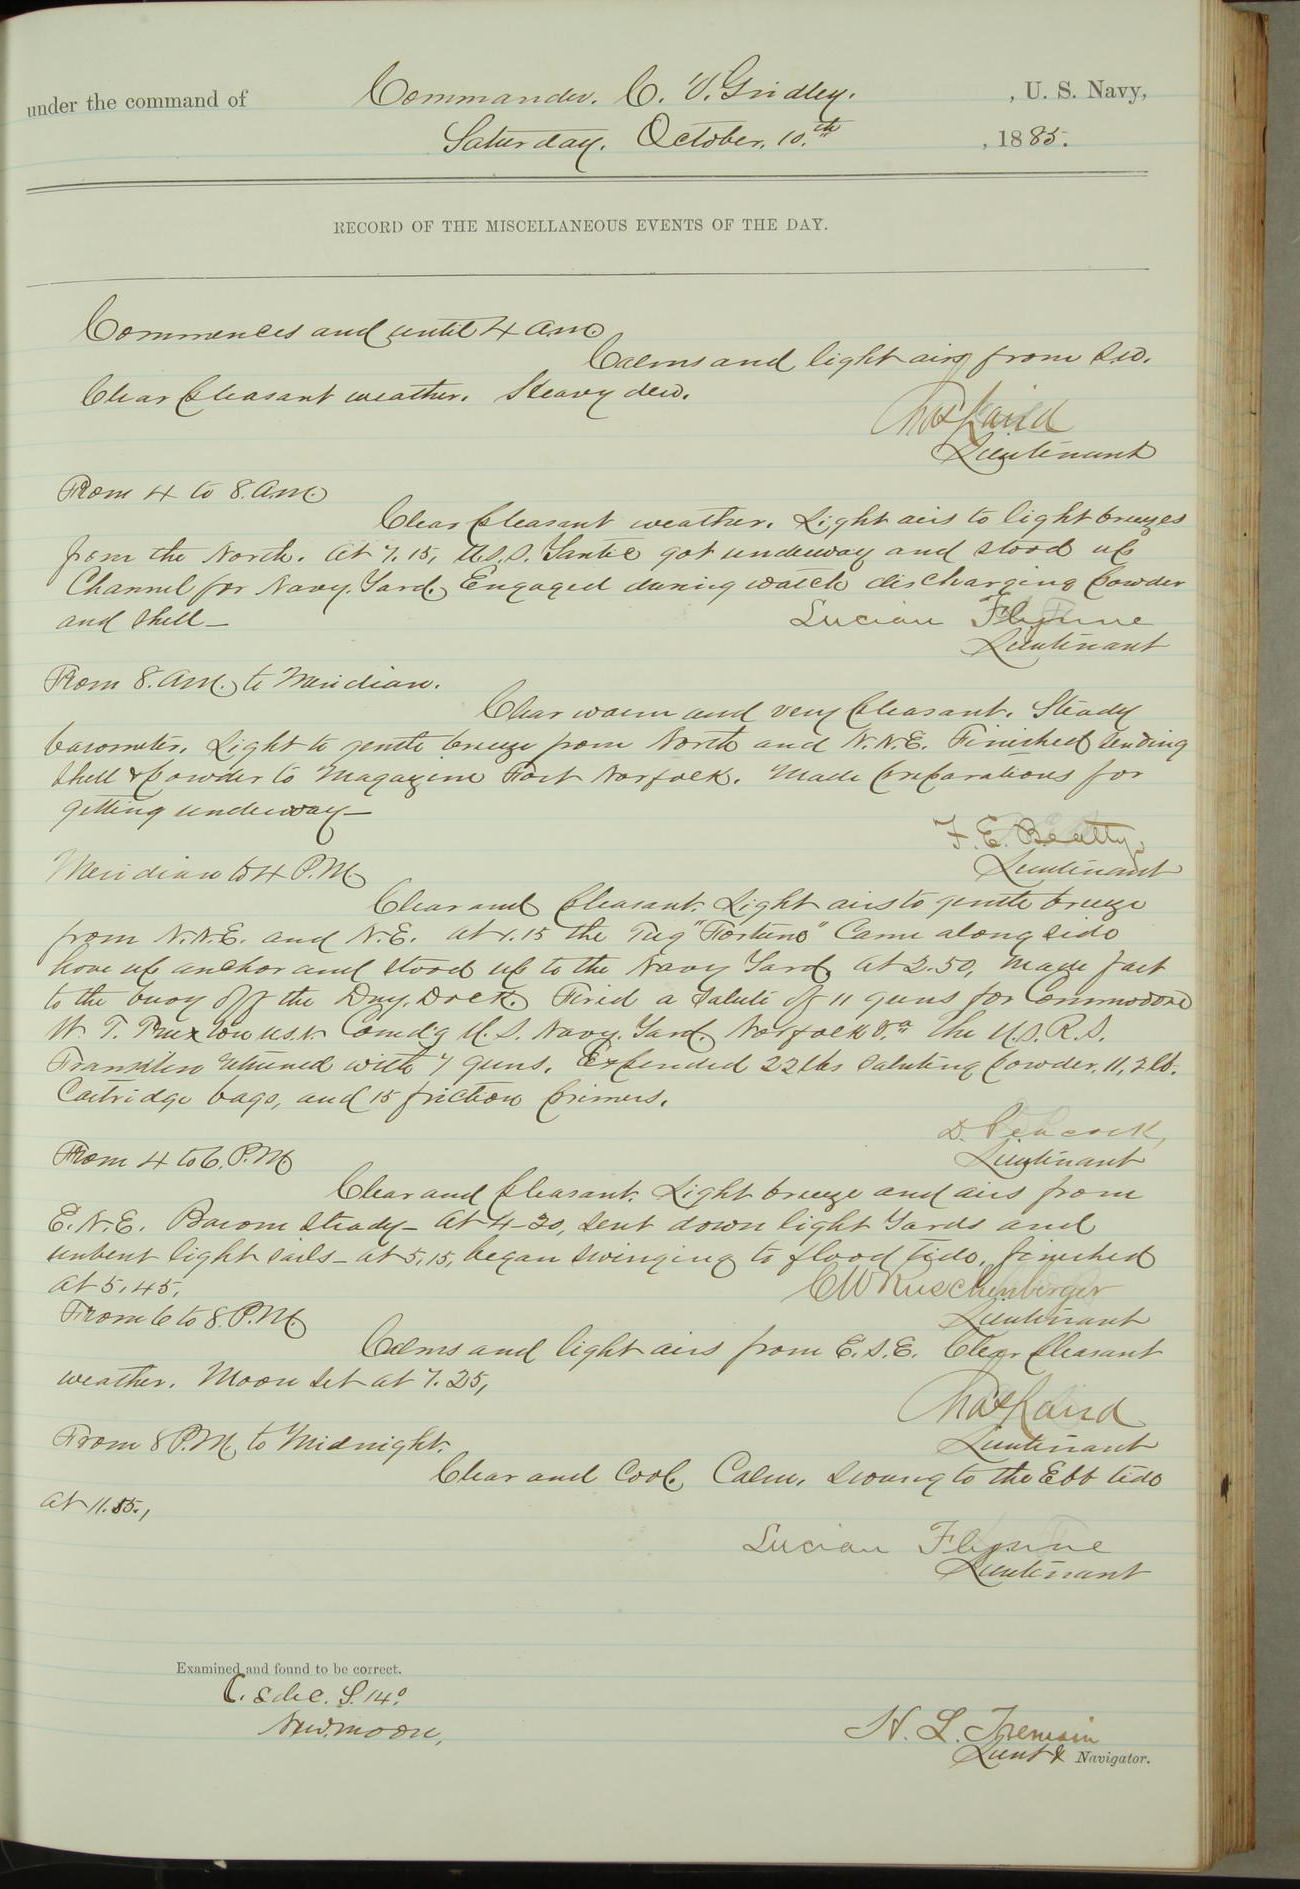 under the command of Commander. C. V. Gridley. , U. S. Navy,
Saturday. October. 10.th , 1885.
RECORD OF THE MISCELLANEOUS EVENTS OF THE DAY.
Commences and until 4 a.m.
Calms and light airs from S.W.
Clear pleasant weather. Heavy dew.
Chas Laird
Lieutenant
From 4 to 8. a.m.
Clear pleasant weather. Light airs to light breezes
from the North. At 7.15, U.S.S. Yantic got underway and stood up
Channel for Navy. Yard. Engaged during watch discharging powder
and shell —
Lucian Flynne
Lieutenant
From 8. a.m. to Meridian.
Clear warm and very pleasant. Steady
barometer. Light to gentle breeze from North and N.N.E. Finished sending
shell & powder to Magazine Fort Norfolk. Made preparations for
getting underway —
F. E. Beatty,
Lieutenant
Meridian to 4 P.M.
Clear and pleasant. Light airs to gentle breeze
from N.N.E. and N.E. at 1.15 the Tug "Fortune" Came along side
hove up anchor and stood up to the Navy Yard, at 2.50, made fast
to the buoy off the Dry. Dock. Fired a Salute of 11 guns for Commodore
W. T. Truxton U.S.N. Comd'g U. S. Navy. Yard. Norfolk Va. The U.S.R.S.
Franklin returned with 7 guns. Expended 22 lbs saluting powder, 11, 2 lb.
Cartridge bags, and 15 friction primers.
D. Peacock,
Lieutenant
From 4 to 6. P.M
Clear and pleasant. Light breeze and airs from
E.N.E. Barom steady — At 4-30, sent down light Yards and
unbent light sails — at 5.15, began swinging to flood tide, finished
at 5.45.
C W Ruschenberger
Lieutenant
From 6 to 8. P.M.
Calms and light airs from E.S.E. Clear pleasant
weather. Moon set at 7.25,
Chas Laird
Lieutenant
From 8 P.M. to Midnight.
Clear and Cool. Calm. swung to the Ebb tide
at 11.55.,
Lucian Flynne
Lieutenant
Examined and found to be correct.
S. 14°
New moon,
H. L. Tremain
Lieut & Navigator.